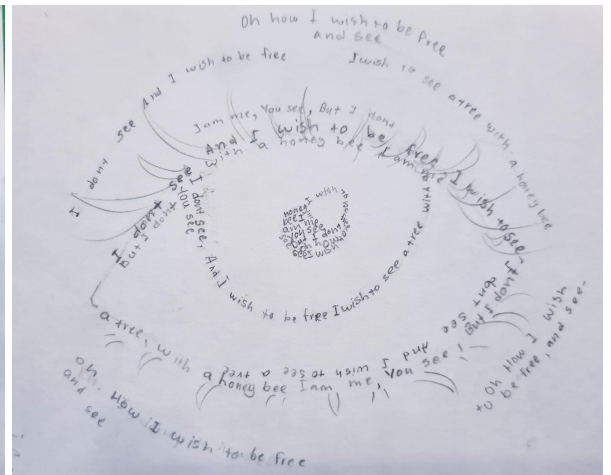 Oh how I wish to be free
And see
I dont see And I wish to be free
I wish to see a tree with a honey bee
I am me, You see, But I dont
And I wish to be free I wish to see
with a honey bee I am me
I dont see, And I wish to be free I wish to see a tree with a
You see
I dont see
But I dont
honey
bee I
am me
you see
But I dont
see
I wish
a tree, with a honey bee I am me, You see, But I dont
dont see And I wish to see a tree
Oh How I wish
to be free, and see
oh. How I wish to be free
and see